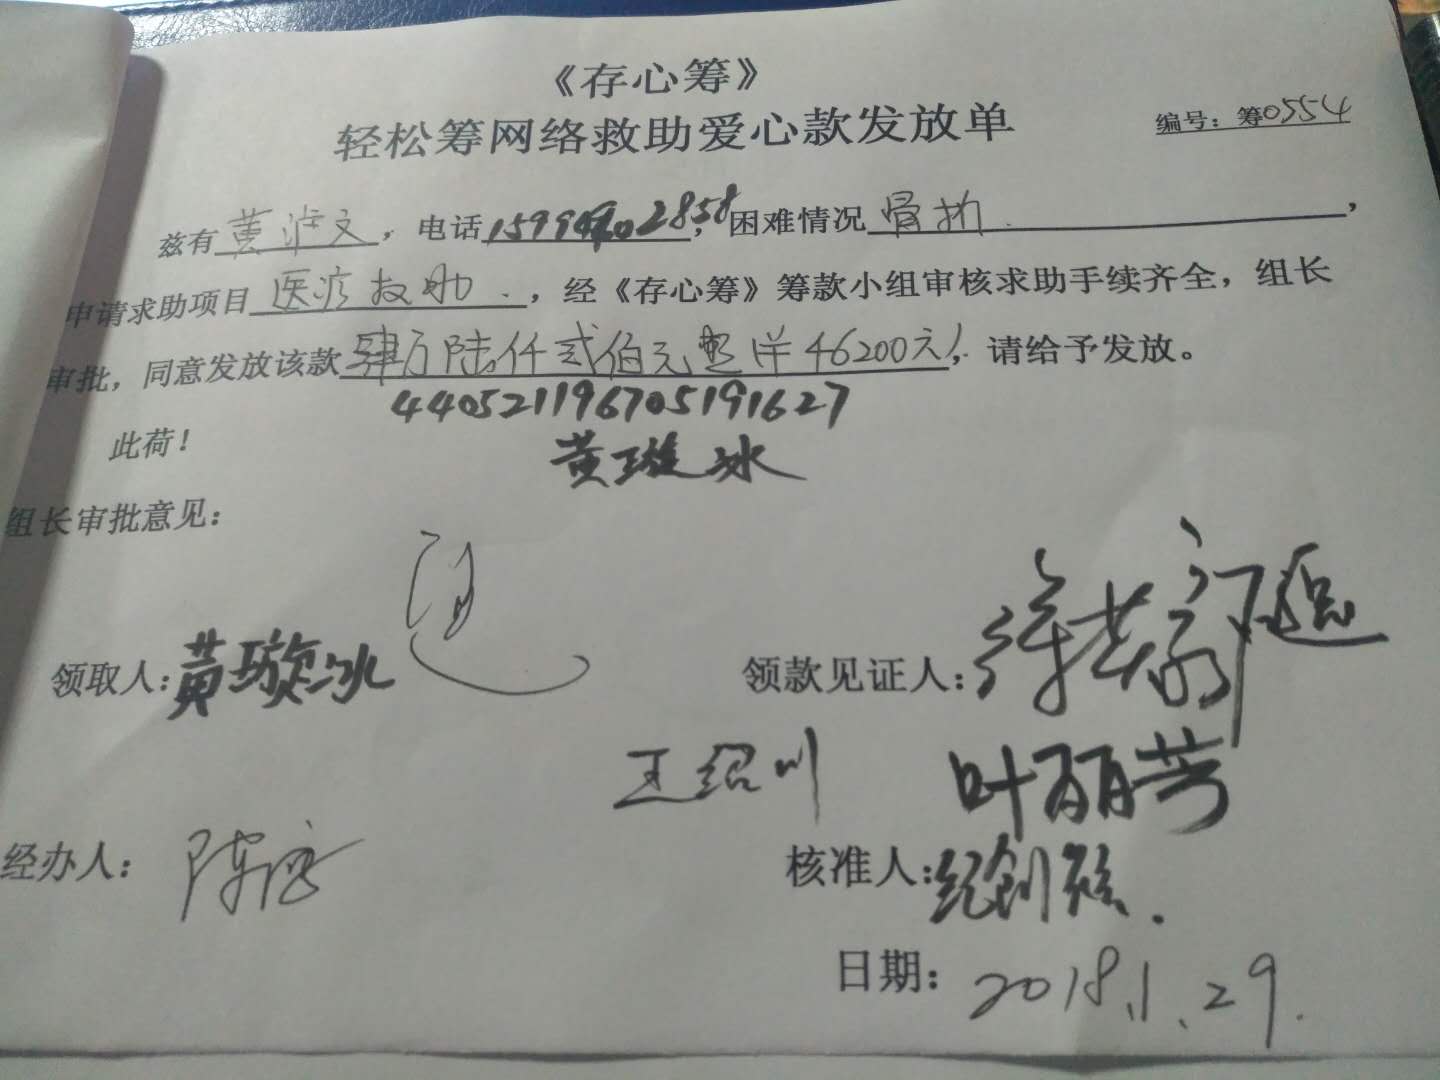 《存心筹》
轻松筹网络救助爱心款发放单
编号：筹0554
兹有黄淮文，电话15994902858，困难情况骨折，
申请求助项目医疗救助，经《存心筹》筹款小组审核求助手续齐全，组长
审批，同意发放该款肆万陆仟贰佰元整 46200元，请给予发放。
440521196705191627
此荷！
黄璇冰
组长审批意见：
领取人：黄璇冰
领款见证人：
王绍川
叶丽芳
经办人：陈
核准人：纪创
日期：2018.1.29.